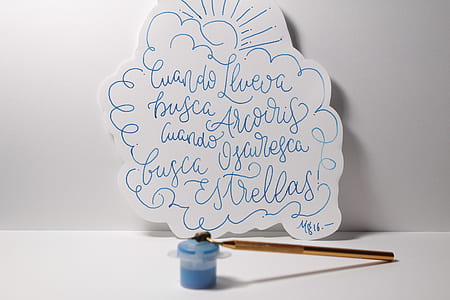 Cuando Llueva
busca Arcoiris
cuando Oscuresca
busca
Estrellas!